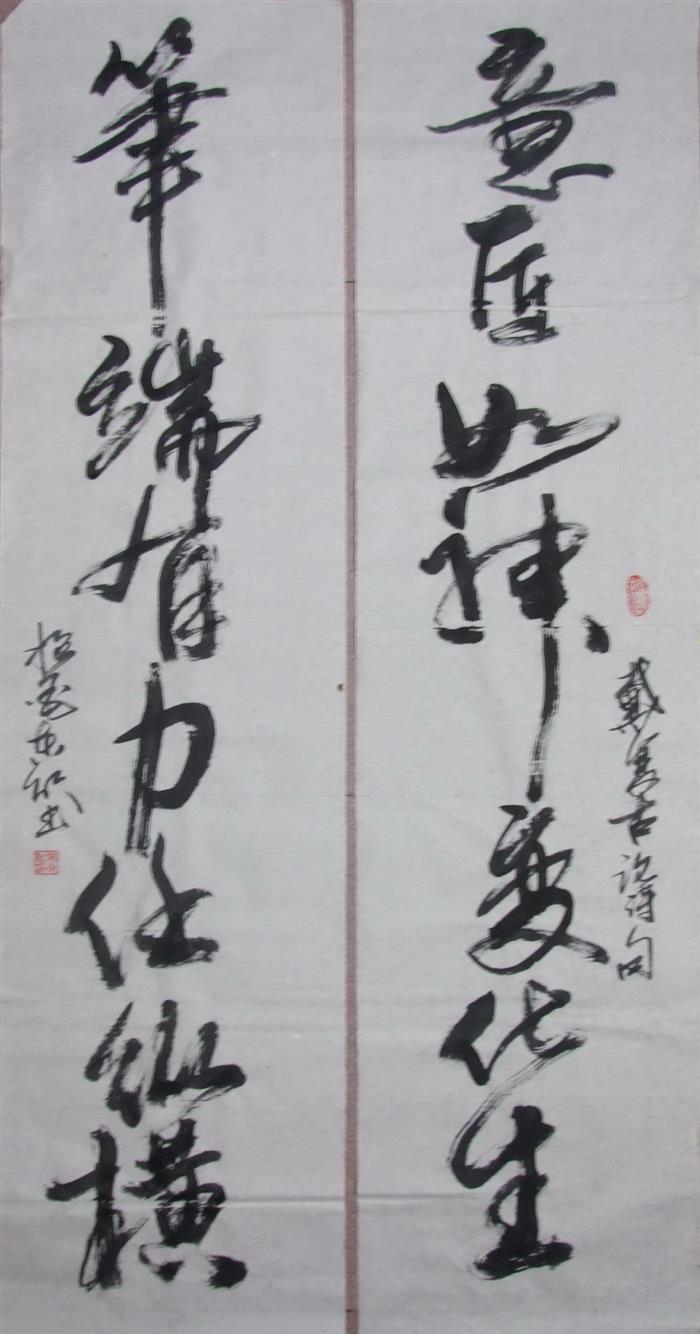 意匠如神变化生
戴复古论诗句
笔端有力任纵横
书